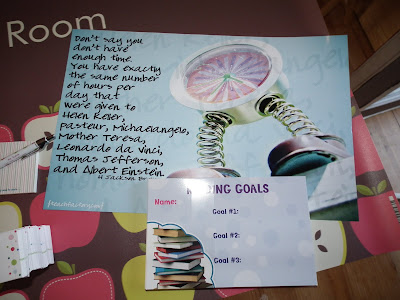 Room
Don't say you
don't have
enough time.
You have exactly
the same number
of hours per
day that
were given to
Helen Keller,
pasteur, Michaelangelo,
Mother Teresa,
Leonardo da Vinci,
Thomas Jefferson,
and Albert Einstein.
H Jackson
GOALS
Name:
Goal #1:
Goal #2:
Goal #3: